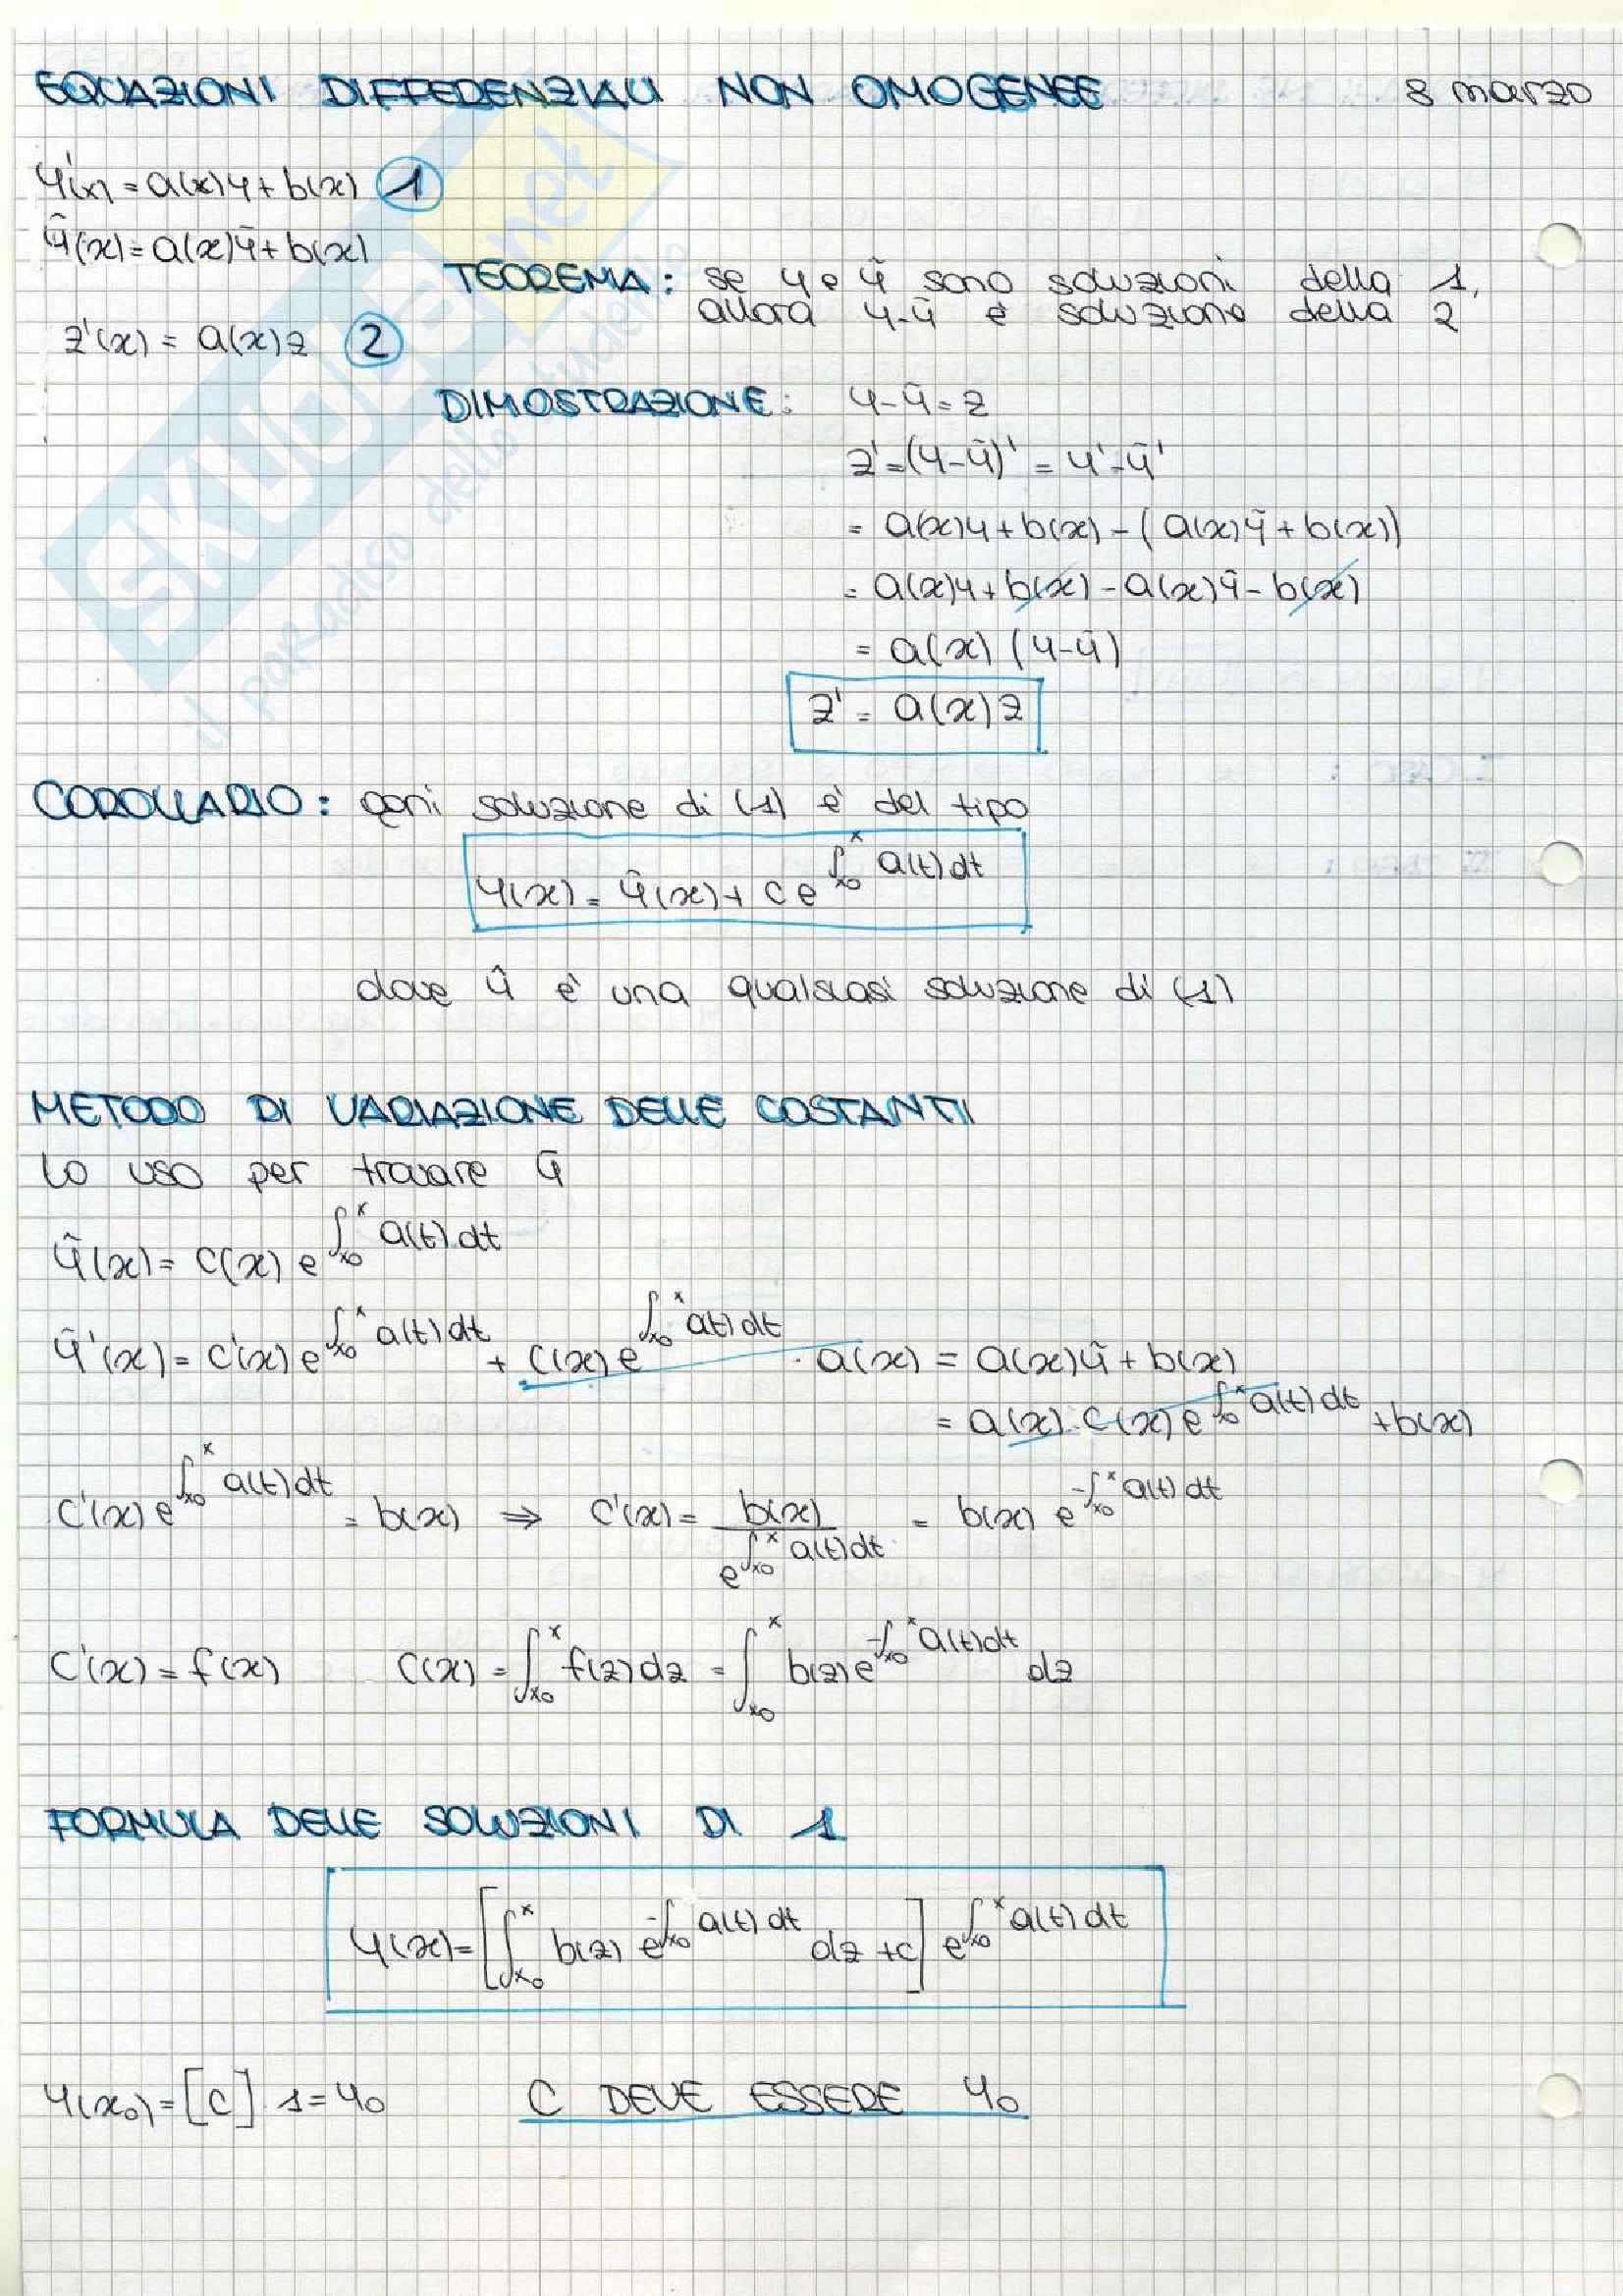 EQUAZIONI DIFFERENZIALI NON OMOGENEE 8 marzo
y'(x) = a(x)y + b(x) 1
ỹ(x) = a(x)ỹ + b(x)
TEOREMA: se y e ỹ sono soluzioni della 1,
allora y-ỹ è soluzione della 2
z'(x) = a(x)z 2
DIMOSTRAZIONE: y-ỹ = z
z' = (y-ỹ)' = y'-ỹ'
= a(x)y + b(x) - (a(x)ỹ + b(x))
= a(x)y + b(x) - a(x)ỹ - b(x)
= a(x) (y-ỹ)
z' = a(x)z
COROLLARIO: ogni soluzione di (1) è del tipo
y(x) = ỹ(x) + c e^{∫_{x0}^{x} a(t)dt}
dove ỹ è una qualsiasi soluzione di (1)
METODO DI VARIAZIONE DELLE COSTANTI
lo uso per trovare ỹ
ỹ(x) = c(x) e^{∫_{x0}^{x} a(t)dt}
ỹ'(x) = c'(x) e^{∫_{x0}^{x} a(t)dt} + c(x) e^{∫_{x0}^{x} a(t)dt} · a(x) = a(x)ỹ + b(x)
= a(x) · c(x) e^{∫_{x0}^{x} a(t)dt} + b(x)
c'(x) e^{∫_{x0}^{x} a(t)dt} = b(x) ⇒ c'(x) = b(x) / e^{∫_{x0}^{x} a(t)dt} = b(x) e^{-∫_{x0}^{x} a(t)dt}
c'(x) = f(x) c(x) = ∫_{x0}^{x} f(z)dz = ∫_{x0}^{x} b(z) e^{-∫_{x0}^{x} a(t)dt} dz
FORMULA DELLE SOLUZIONI DI 1
y(x) = [∫_{x0}^{x} b(z) e^{-∫_{x0} a(t)dt} dz + c] e^{∫_{x0}^{x} a(t)dt}
y(x0) = [c] · 1 = y0 C DEVE ESSERE y0
SKUOLA.net
il paradiso dello studente